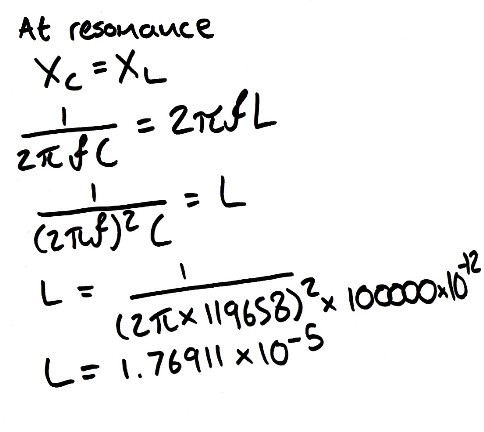 At resonance
X_C = X_L
1/(2πfC) = 2πfL
1/((2πf)²C) = L
L = 1/((2π×119658)² × 100000×10⁻¹²)
L = 1.76911 × 10⁻⁵